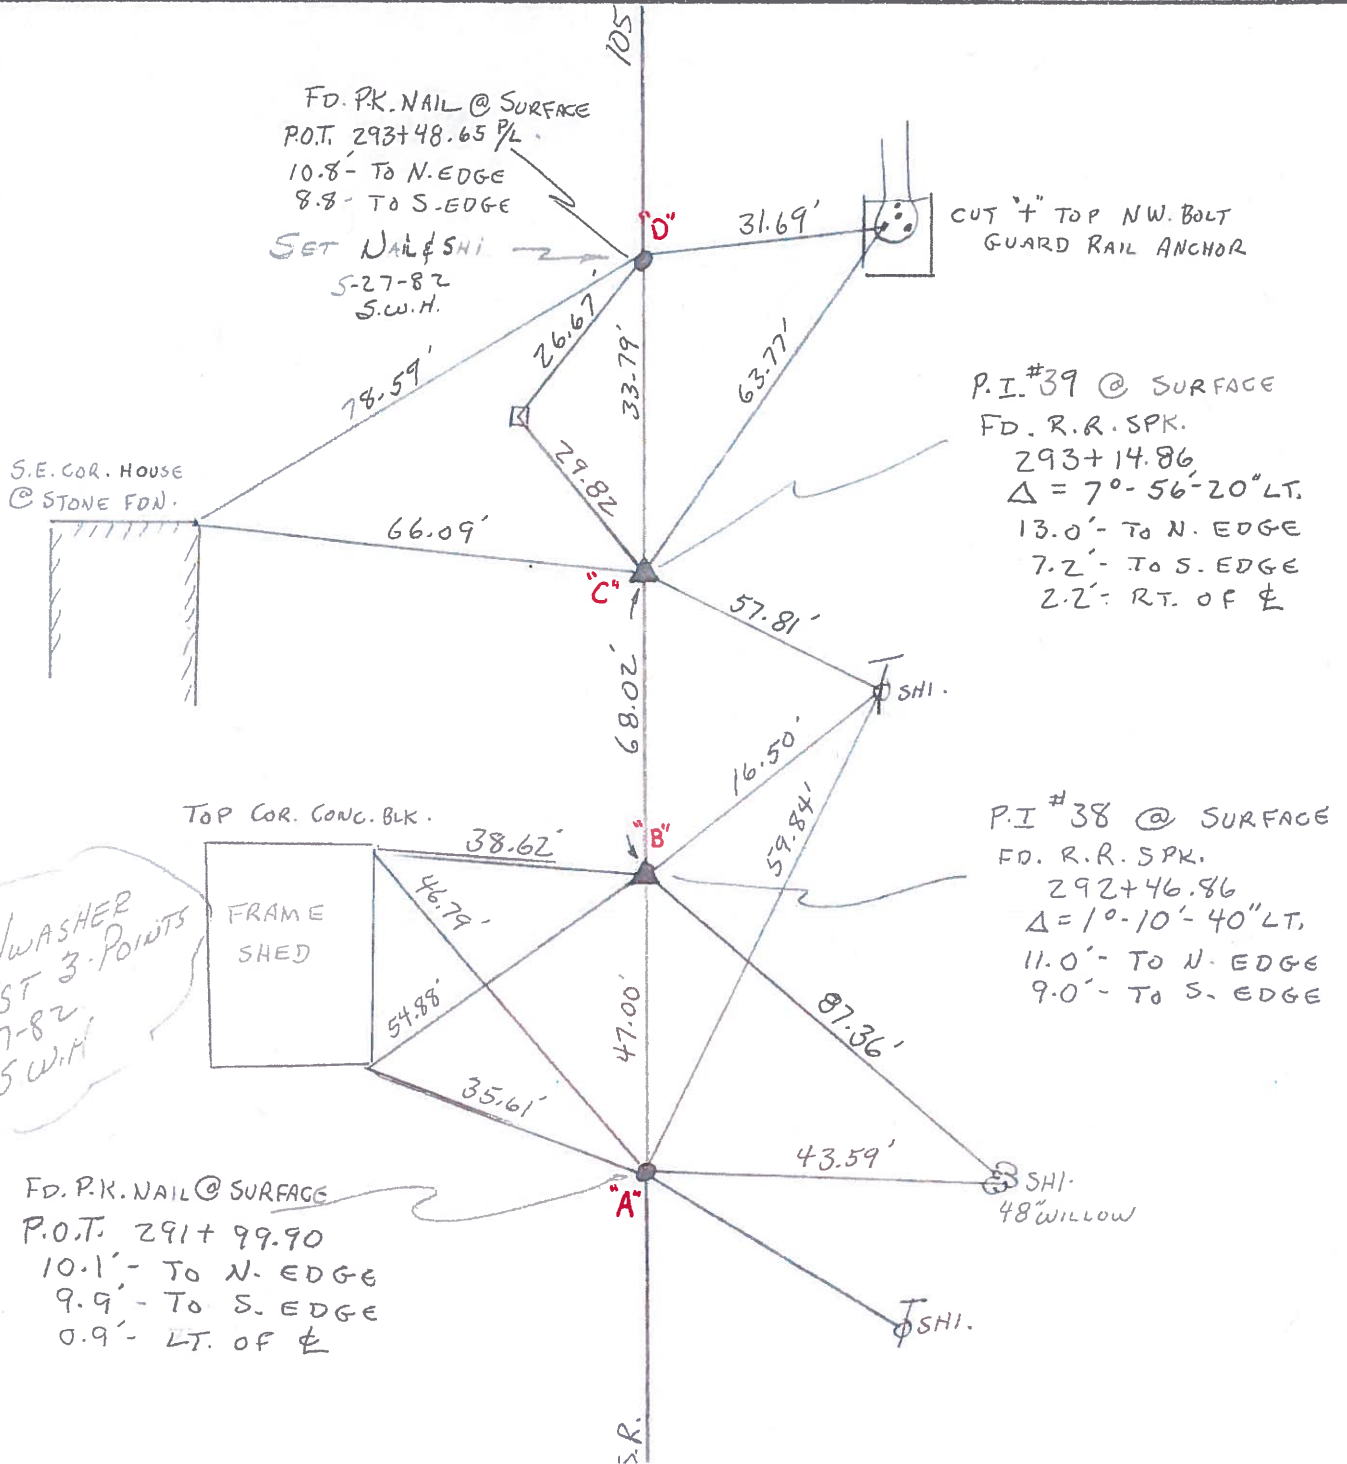 105
FD. P.K. NAIL @ SURFACE
P.O.T. 293+48.65 P/L
10.8'- TO N. EDGE
8.8'- TO S. EDGE
SET NAIL & SHI
5-27-82
S.W.H.
"D"
31.69'
CUT "+" TOP N.W. BOLT
GUARD RAIL ANCHOR
78.59'
26.67'
33.79'
63.77'
29.82
S.E. COR. HOUSE
@ STONE FDN.
66.09'
"C"
P.I. #39 @ SURFACE
FD. R.R. SPK.
293+14.86
Δ = 7°-56'-20" LT.
13.0'- TO N. EDGE
7.2'- TO S. EDGE
2.2'- RT. OF ℄
57.81'
68.02'
SHI.
16.50'
59.84'
TOP COR. CONC. BLK.
38.62'
"B"
46.79'
FRAME
SHED
54.88'
47.00'
87.36'
P.I #38 @ SURFACE
FD. R.R. SPK.
292+46.86
Δ = 1°-10'-40" LT.
11.0'- TO N. EDGE
9.0'- TO S. EDGE
WASHER
3-POINTS
7-82
S.W.H
35.61'
43.59'
"A"
SHI.
48" WILLOW
FD. P.K. NAIL @ SURFACE
P.O.T. 291+99.90
10.1'- TO N. EDGE
9.9'- TO S. EDGE
0.9'- LT. OF ℄
SHI.
S.R.